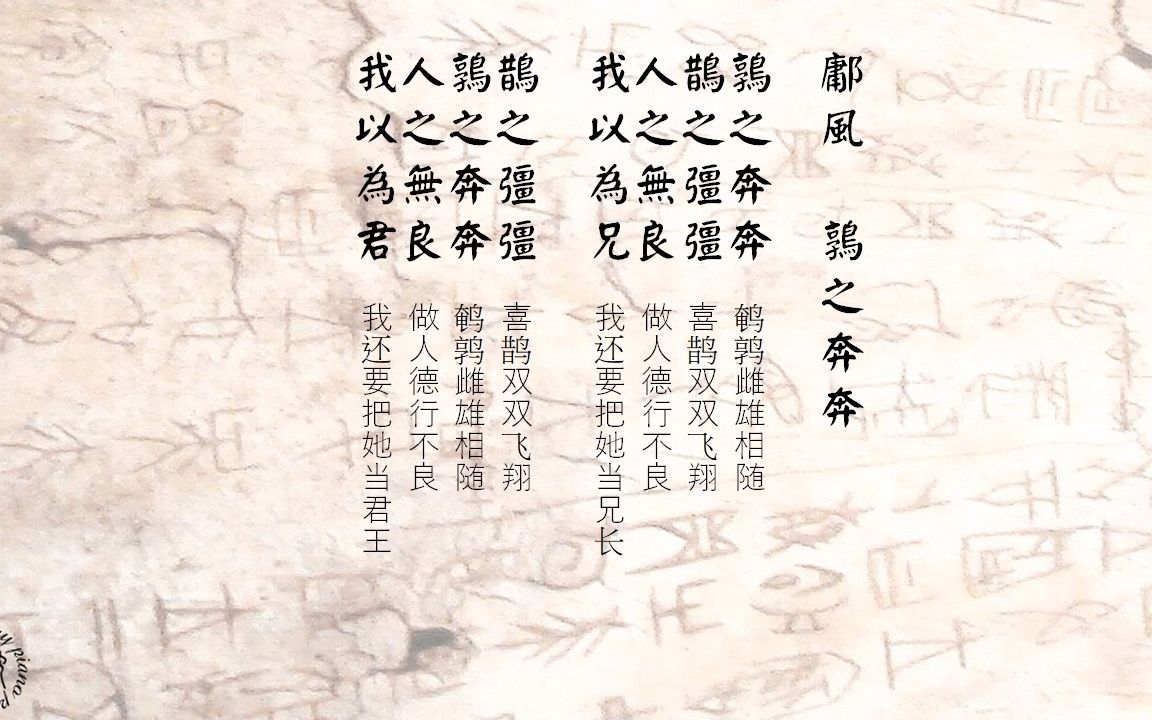 鄘風　鶉之奔奔
鶉之奔奔　鹌鹑雌雄相随
鵲之彊彊　喜鹊双双飞翔
人之無良　做人德行不良
我以為兄　我还要把她当兄长
鵲之彊彊　喜鹊双双飞翔
鶉之奔奔　鹌鹑雌雄相随
人之無良　做人德行不良
我以為君　我还要把她当君王
piano